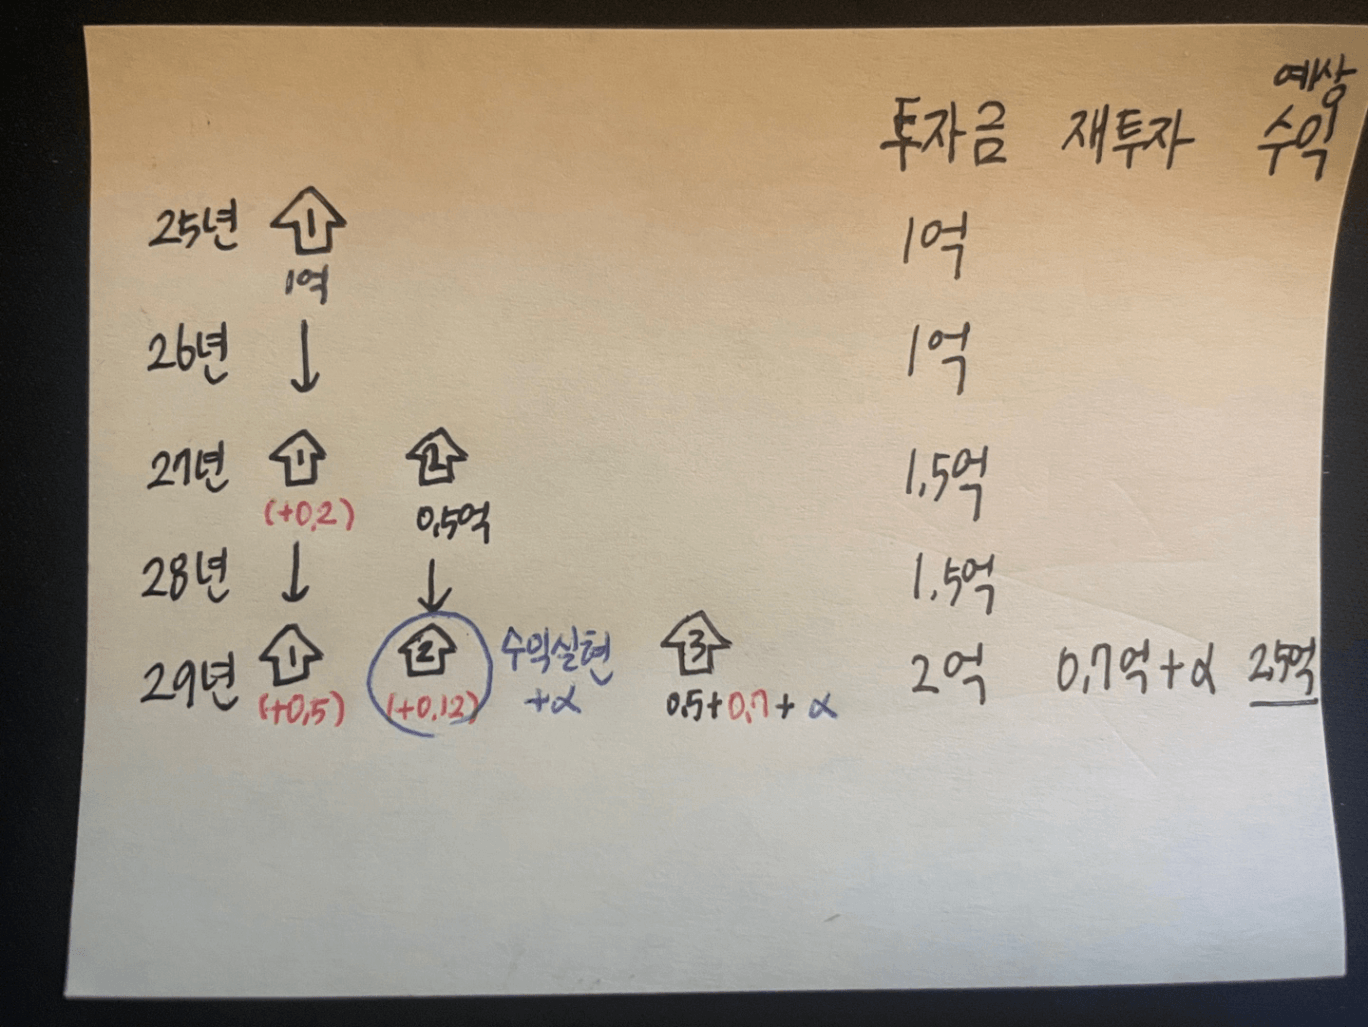 예상
투자금 재투자 수익
25년 1 1억
1억
26년 1억
27년 1 2 1,5억
(+0,2) 0,5억
28년 1,5억
29년 1 2 수익실현 3 2억 0,7억+α 2,5억
(+0,5) (+0,12) +α 0,5+0,7+α